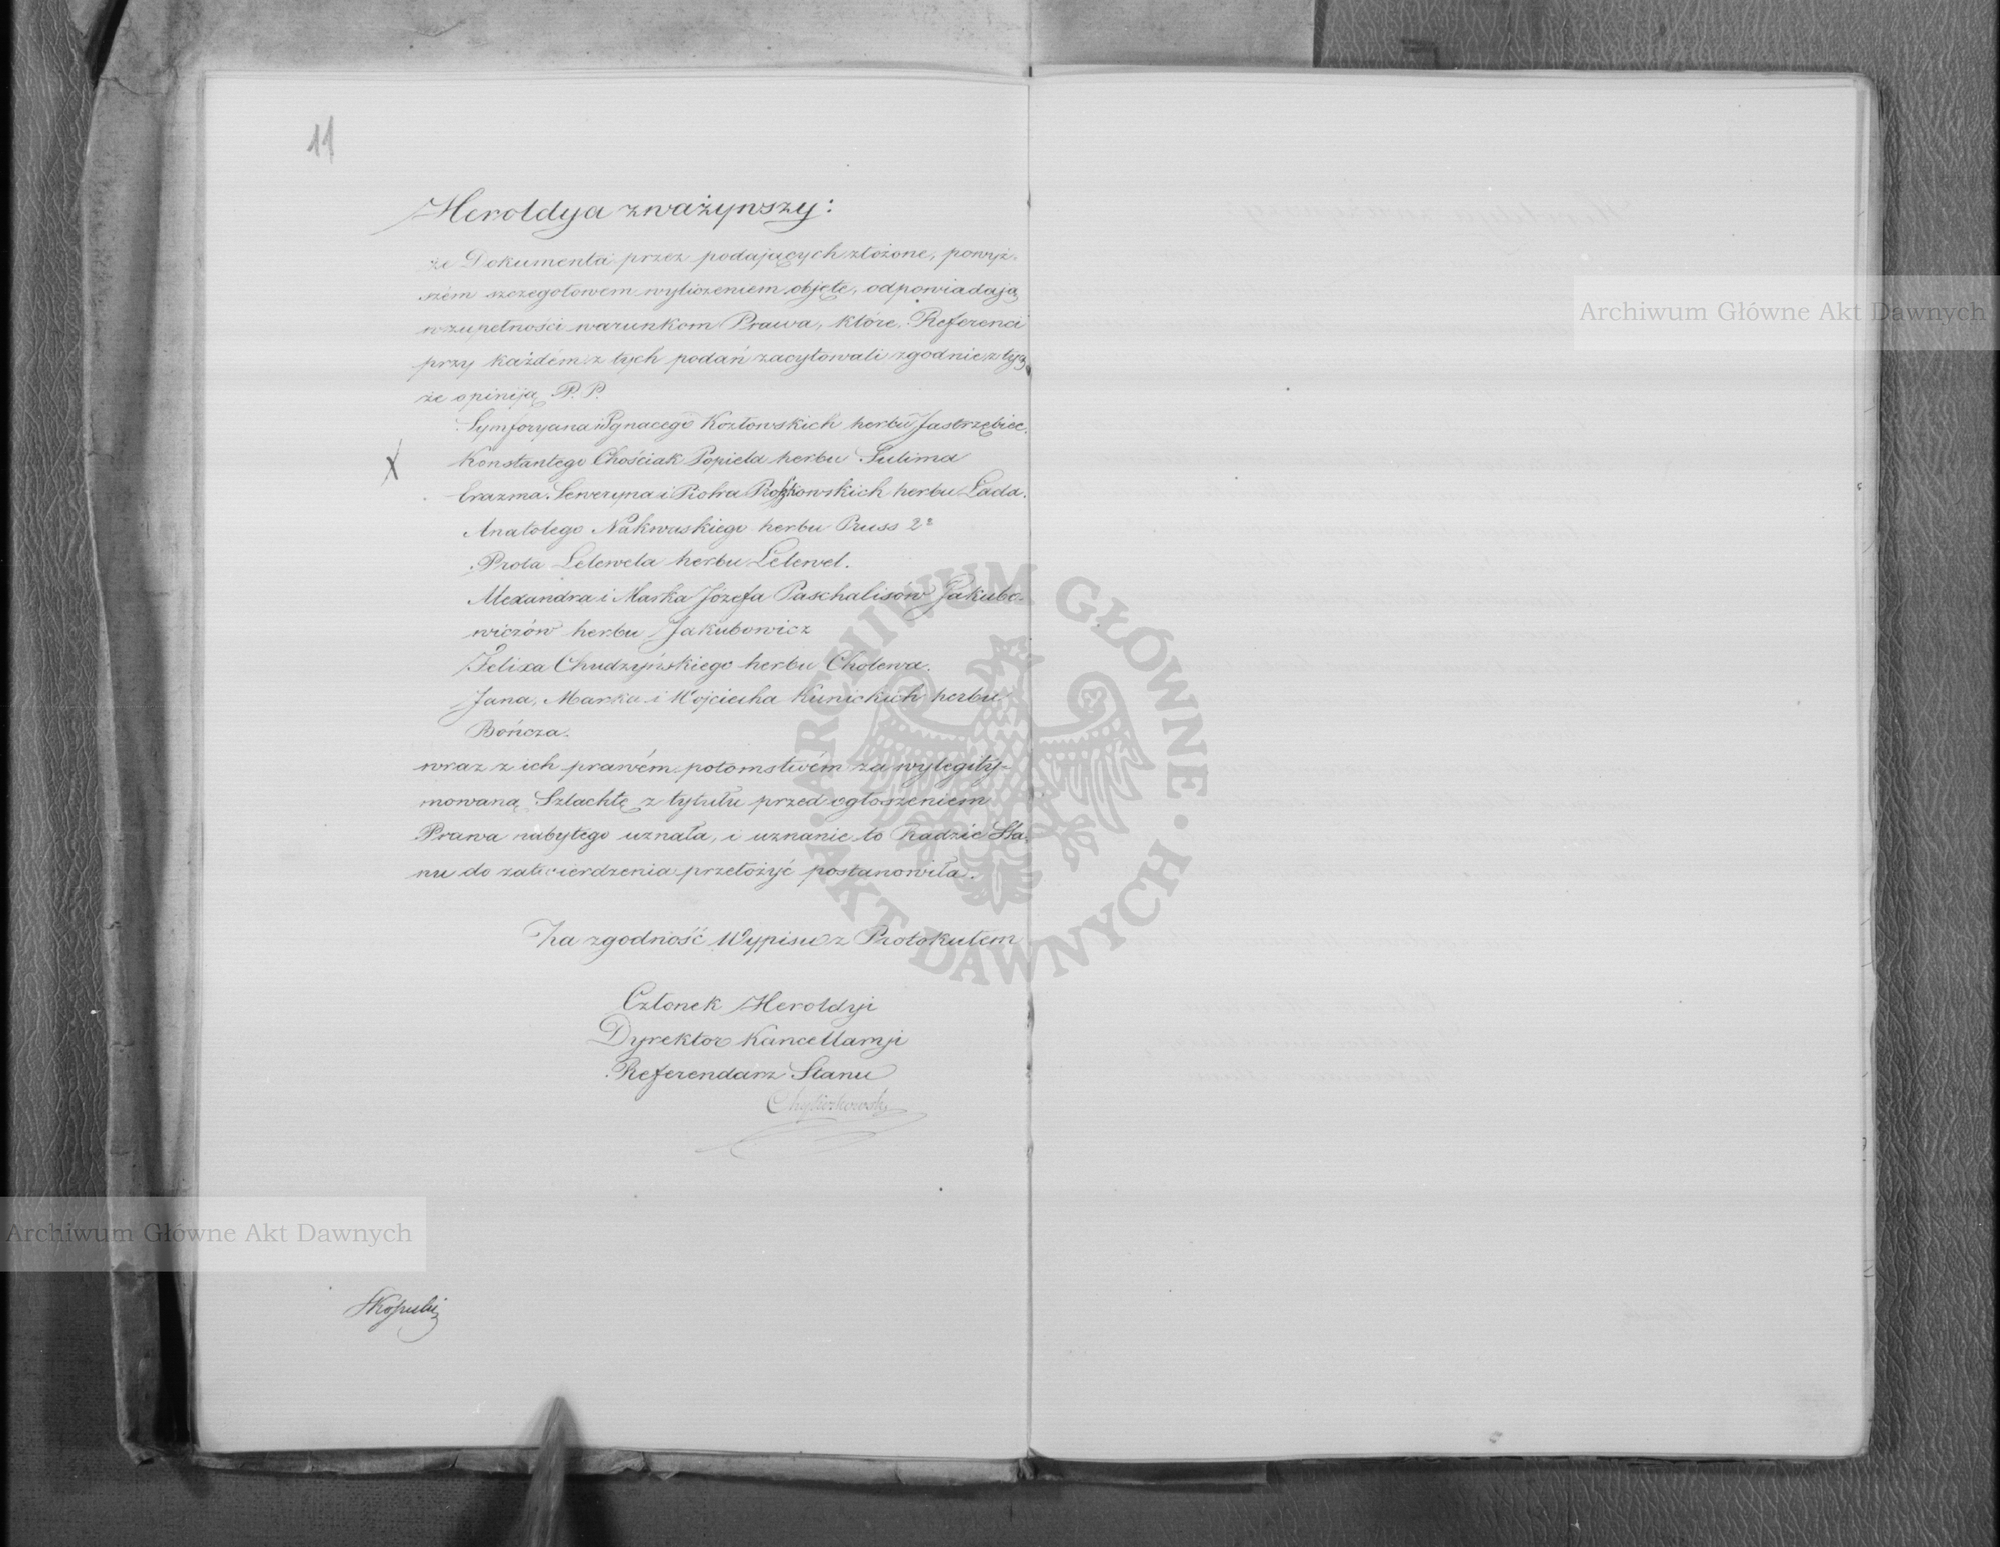 11
Heroldya zważywszy:
że Dokumenta przez podających złożone, powyż-
szém szczegołowem wyliczeniem objęte, odpowiadają
w zupełności warunkom Prawa, które, Referenci
przy każdém z tych podań zacytowali zgodnie z tyą
że opinją P.P.
Symforyana i Ignacego Kozłowskich herbu Jastrzębiec.
X
Konstantego Chościak Popiela herbu Sulima
Erazma, Seweryna i Piotra herbu Łada.
Anatolego Nakwaskiego herbu Pruss 2º
Prota Lelewela herbu Lelewel.
Alexandra i Marka Józefa Paschalisów Jakubo-
wiczów herbu Jakubowicz
Felixa Chudzyńskiego herbu Cholewa.
Jana, Marka i Wojciecha Kunickich herbu
Bończa.
wraz z ich prawém potomstwém za wylegity-
mowaną Szlachtę z tytułu przed ogłoszeniem
Prawa nabytego uznała, i uznanie to Radzie Sta-
nu do zatwierdzenia przełożyć postanowiła.
Za zgodność Wypisu z Protokułem
Członek Heroldyi
Dyrektor Kancellaryi
Referendarz Stanu
Chyliczkowski
Archiwum Główne Akt Dawnych
Archiwum Główne Akt Dawnych
ARCHIWUM GŁÓWNE · AKT DAWNYCH ·